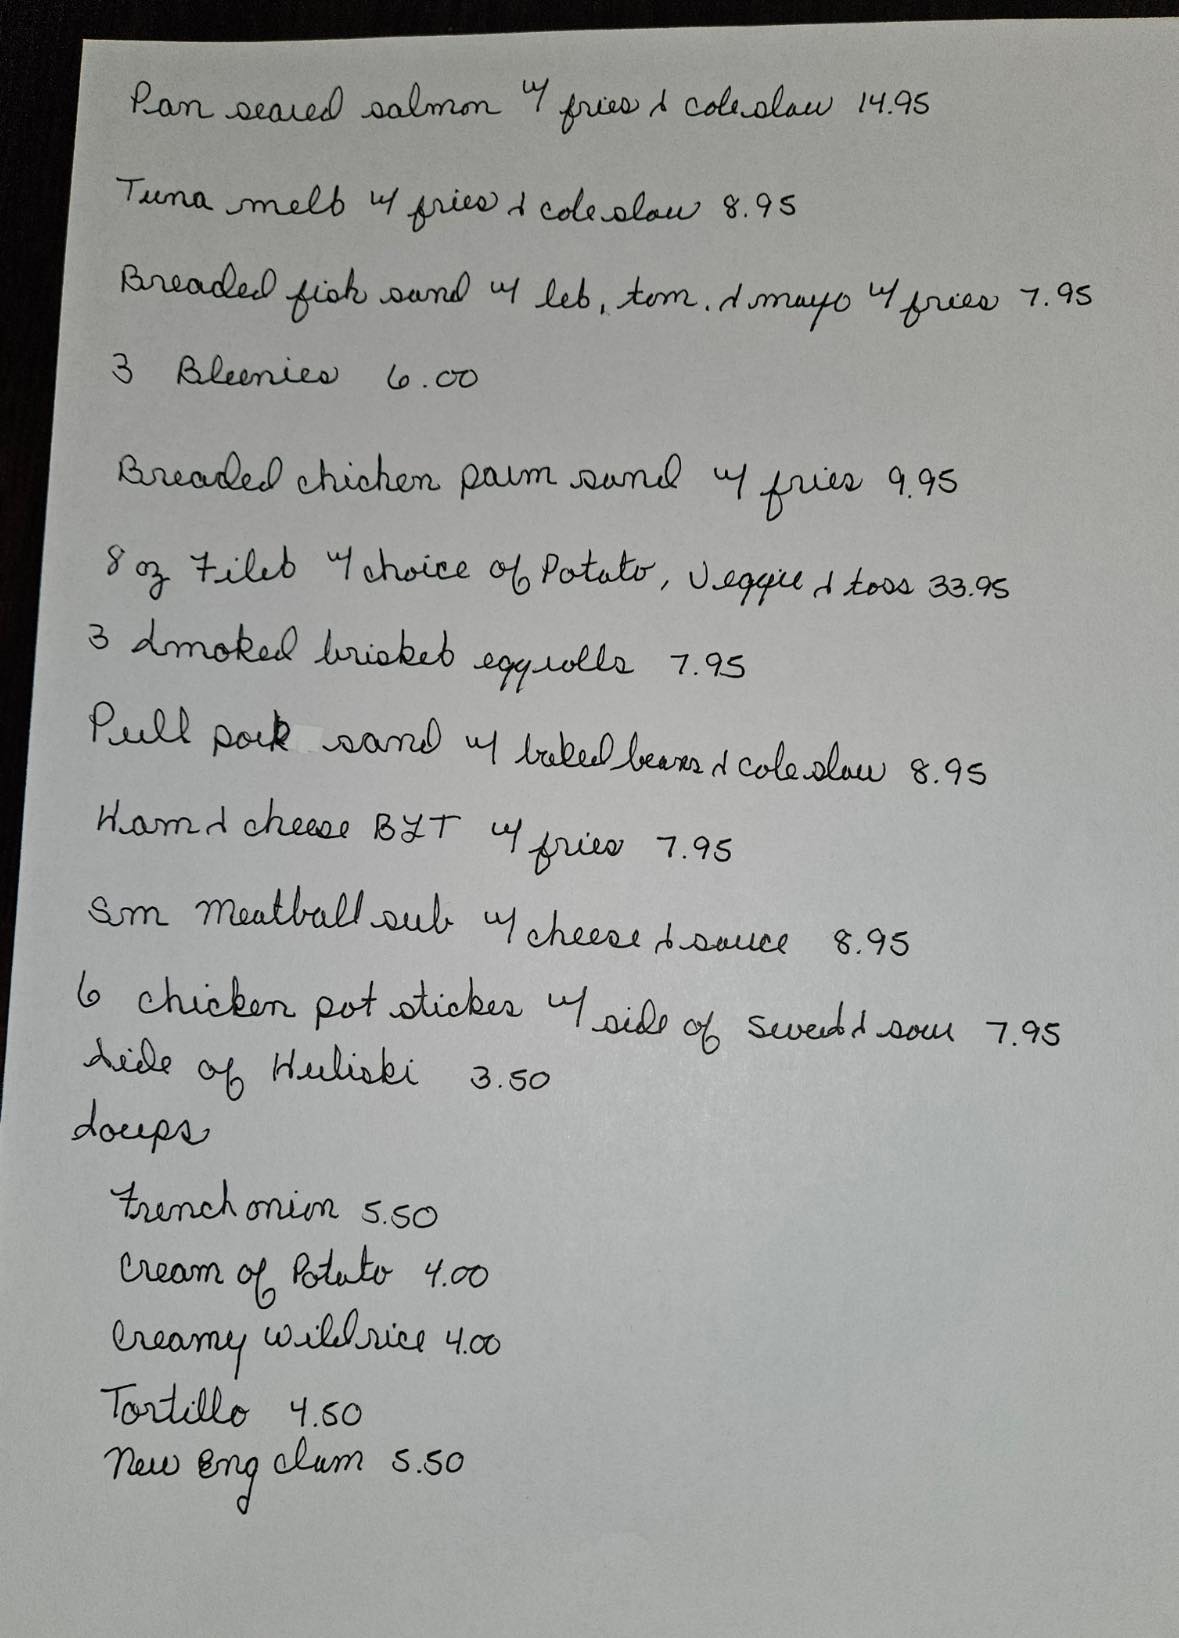 Pan seared salmon w/ fries & coleslaw 14.95
Tuna melt w/ fries & coleslaw 8.95
Breaded fish sand w/ let, tom. & mayo w/ fries 7.95
3 Bleenies 6.00
Breaded chicken parm sand w/ fries 9.95
8 oz Filet w/ choice of Potato, Veggie & toss 33.95
3 Smoked brisket eggrolls 7.95
Pull pork sand w/ baked beans & coleslaw 8.95
Ham & cheese BLT w/ fries 7.95
Sm Meatball sub w/ cheese & sauce 8.95
6 chicken pot sticker w/ side of sweet & sour 7.95
Side of Huliski 3.50
Soups
French onion 5.50
Cream of Potato 4.00
Creamy wild rice 4.00
Tortilla 4.50
New Eng clam 5.50